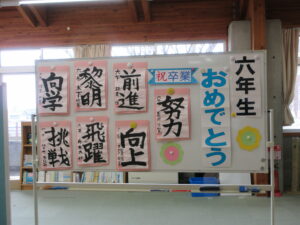 六年生
おめでとう
祝卒業
努力
前進
向上
黎明
飛躍
力学
挑戦